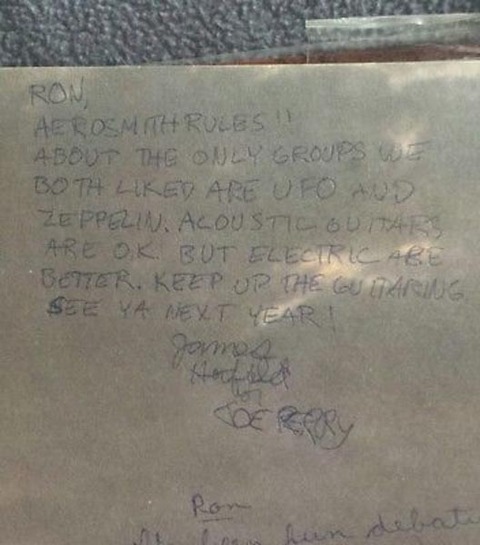 RON,
AEROSMITH RULES!!
ABOUT THE ONLY GROUPS WE
BOTH LIKED ARE UFO AND
ZEPPELIN. ACOUSTIC GUITARS
ARE O.K. BUT ELECTRIC ARE
BETTER. KEEP UP THE GUITARING
SEE YA NEXT YEAR!
James
Hetfield
or
JOE PERRY
Ron
been fun debati